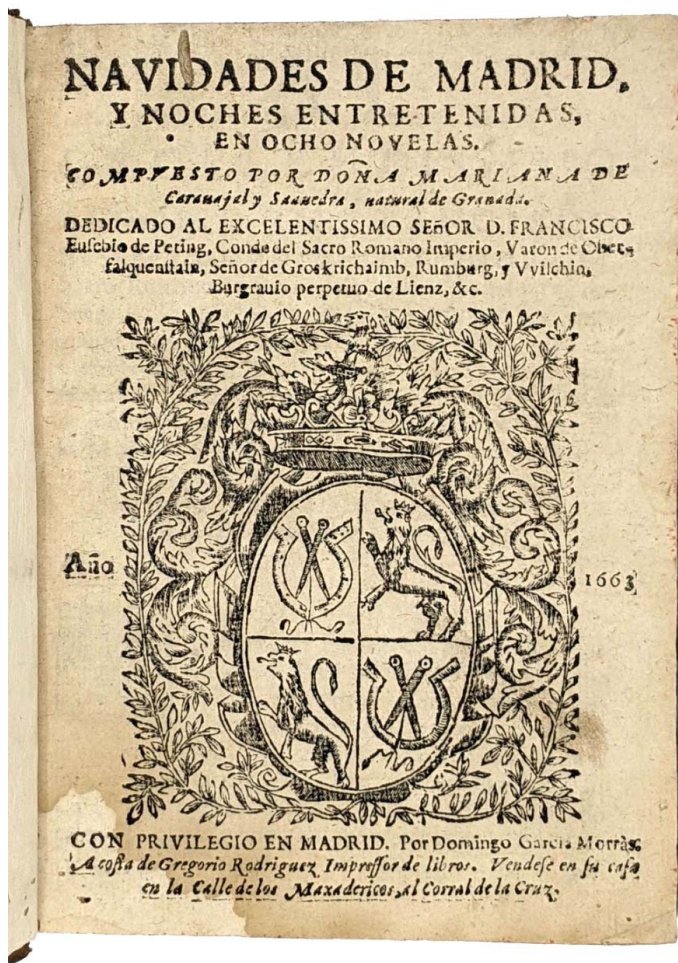 NAVIDADES DE MADRID,
Y NOCHES ENTRETENIDAS,
EN OCHO NOVELAS.
COMPVESTO POR DOÑA MARIANA DE
Carauajal y Saauedra, natural de Granada.
DEDICADO AL EXCELENTISSIMO SEñOR D. FRANCISCO
Eusebio de Peting, Conde del Sacro Romano Imperio, Varon de Ober-
falquenstain, Señor de Groskrichaimb, Rumburg, y Vvilchin,
Burgrauio perpetuo de Lienz, &c.
Año 1663
CON PRIVILEGIO EN MADRID. Por Domingo Garcia Morràs.
A costa de Gregorio Rodriguez Impressor de libros. Vendese en su casa
en la Calle de los Maxadericos, al Corral de la Cruz.